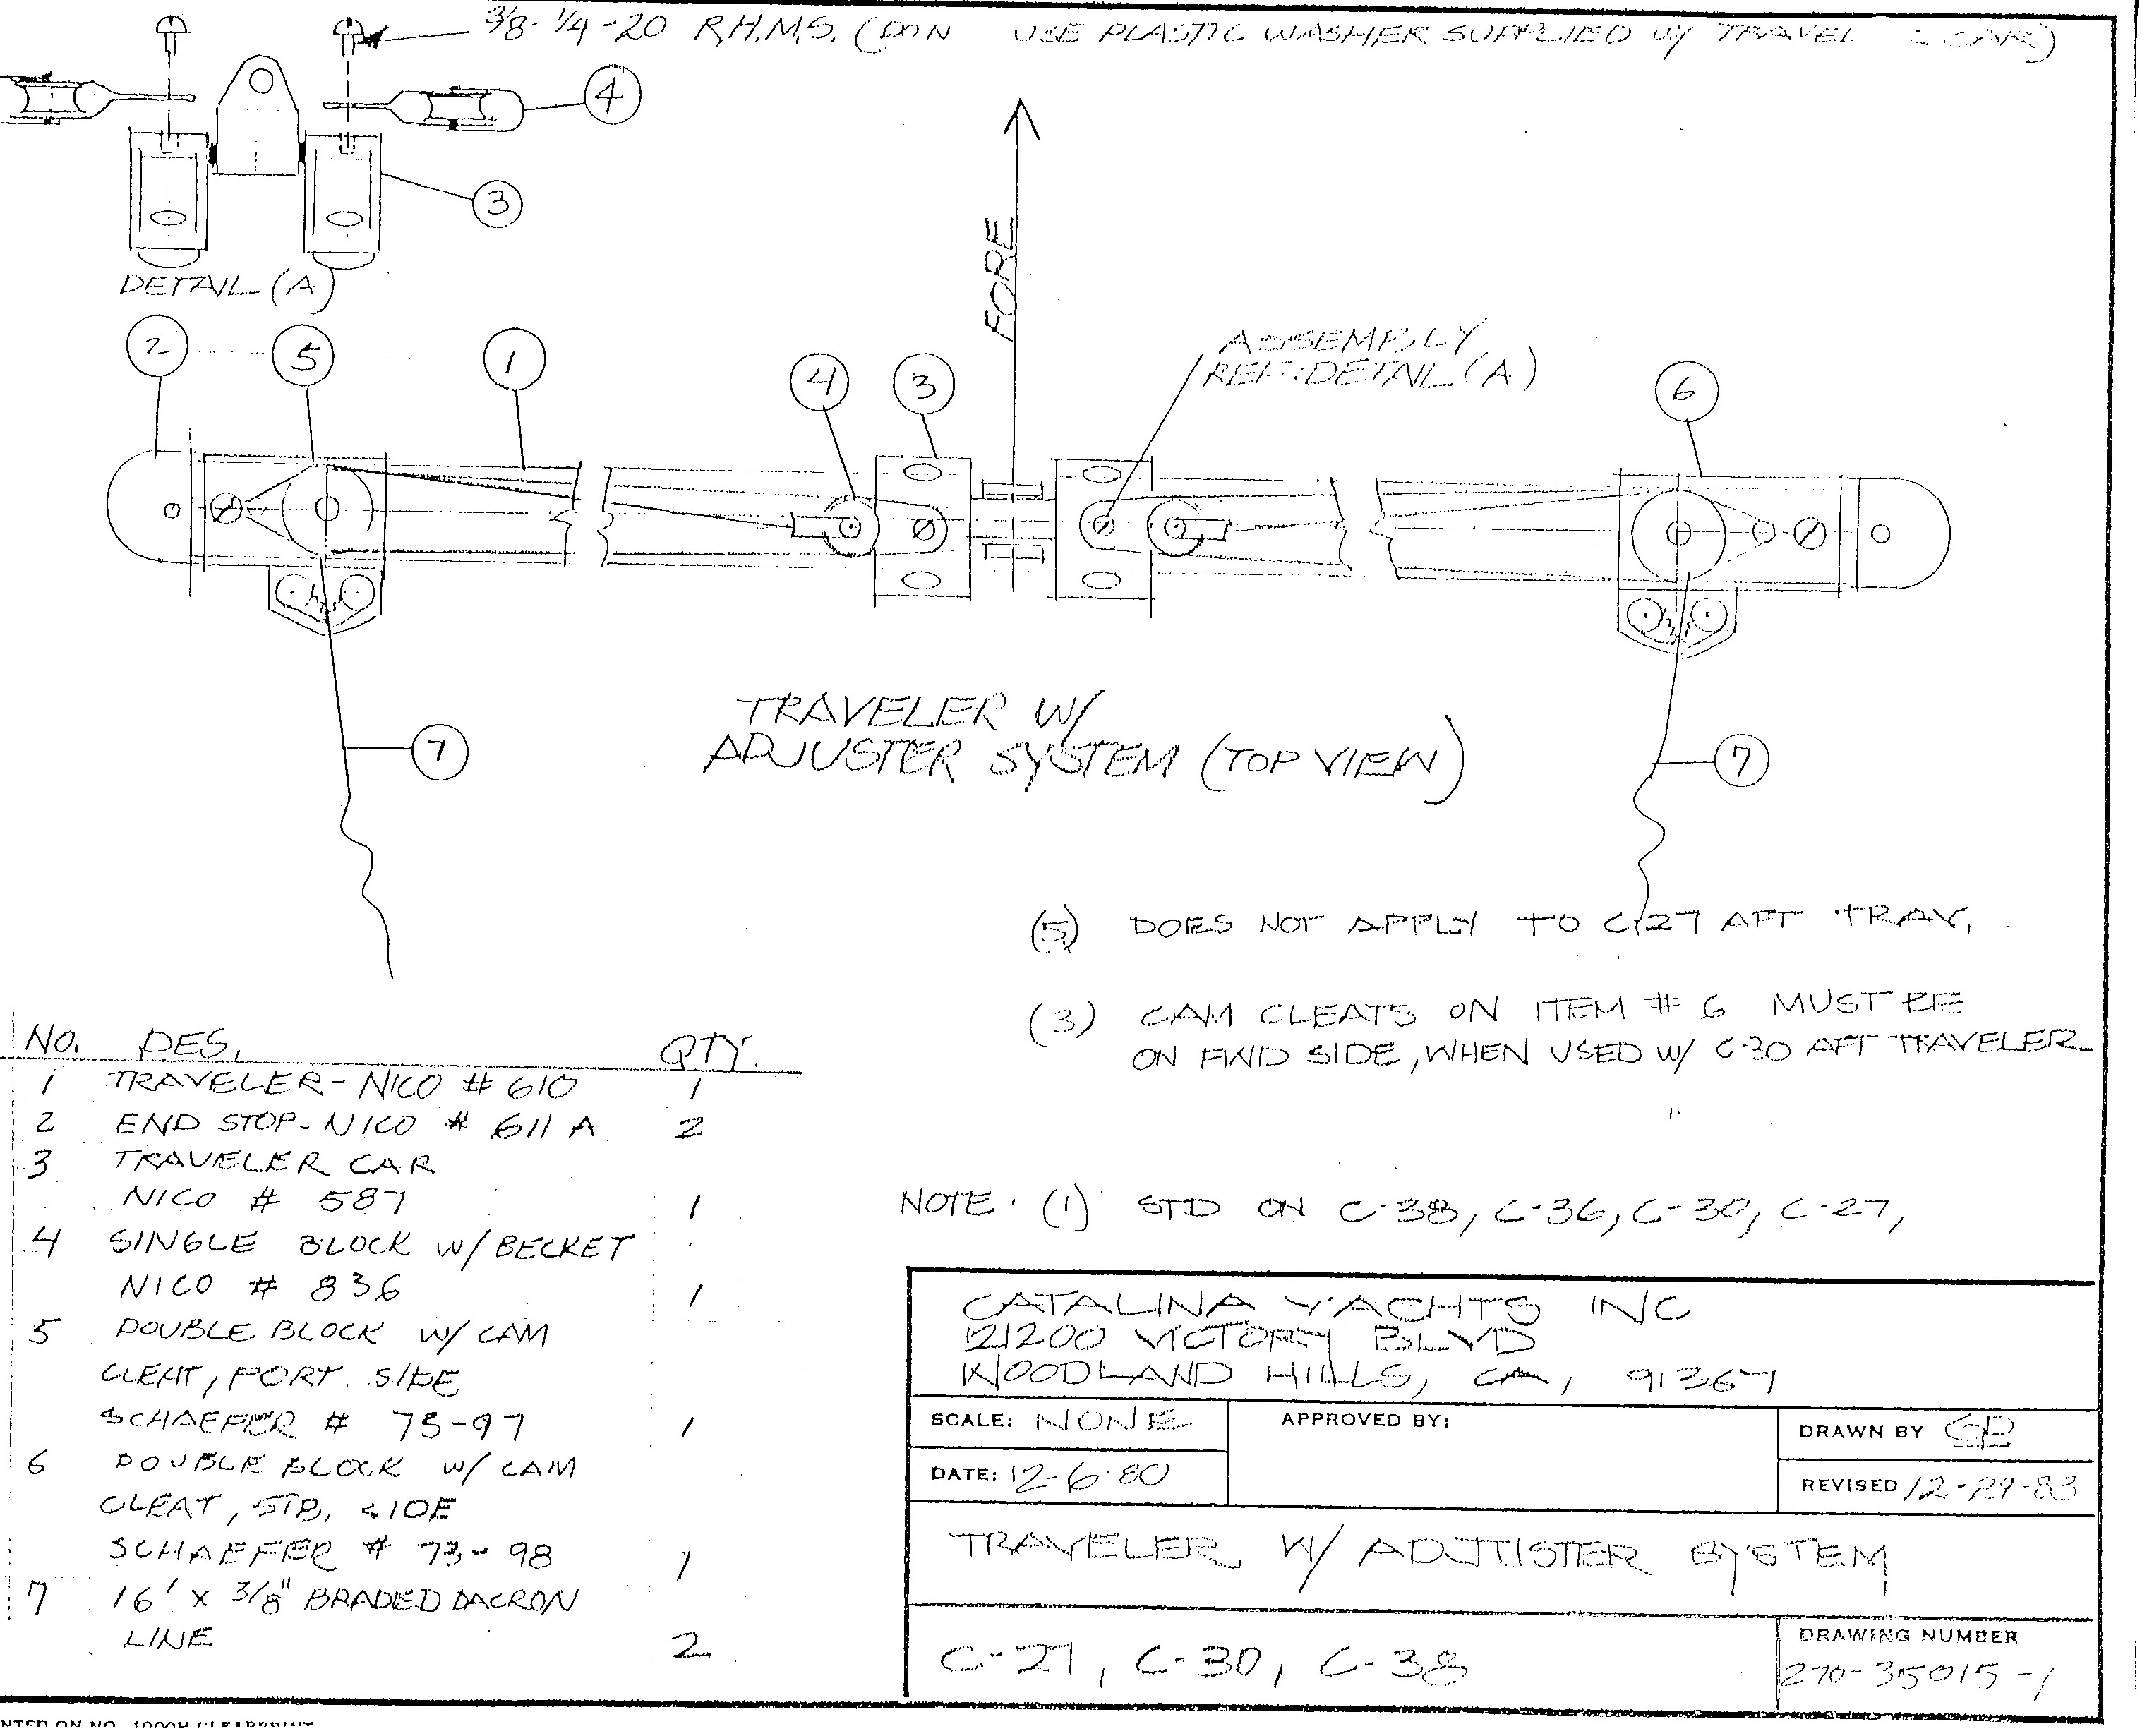 3/8-1/4-20 R.H.M.S. (DON USE PLASTIC WASHER SUPPLIED W/ TRAVEL CAR)
4
3
DETAIL (A)
FORE
2
5
1
4
3
ASSEMBLY
REF: DETAIL (A)
6
TRAVELER W/
ADJUSTER SYSTEM (TOP VIEW)
7
7
(5) DOES NOT APPLY TO C-27 AFT TRAV.
(3) CAM CLEATS ON ITEM # 6 MUST BE
ON FWD SIDE, WHEN USED W/ C-30 AFT TRAVELER
NOTE. (1) STD ON C-38, C-36, C-30, C-27,
NO. DES. QTY.
1 TRAVELER- NICO # 610 1
2 END STOP- NICO # 611 A 2
3 TRAVELER CAR
NICO # 587 1
4 SINGLE BLOCK W/ BECKET
NICO # 836 1
5 DOUBLE BLOCK W/ CAM
CLEAT, PORT. SIDE
SCHAEFER # 73-97 1
6 DOUBLE BLOCK W/ CAM
CLEAT, STB, SIDE
SCHAEFER # 73-98 1
7 16' X 3/8" BRADED DACRON
LINE 2
CATALINA YACHTS INC
21200 VICTORY BLVD
WOODLAND HILLS, CA, 91367
SCALE: NONE
APPROVED BY:
DRAWN BY
DATE: 12-6-80
REVISED 12-29-83
TRAVELER W/ ADJUSTER SYSTEM
C-27, C-30, C-38
DRAWING NUMBER
270-35015-1